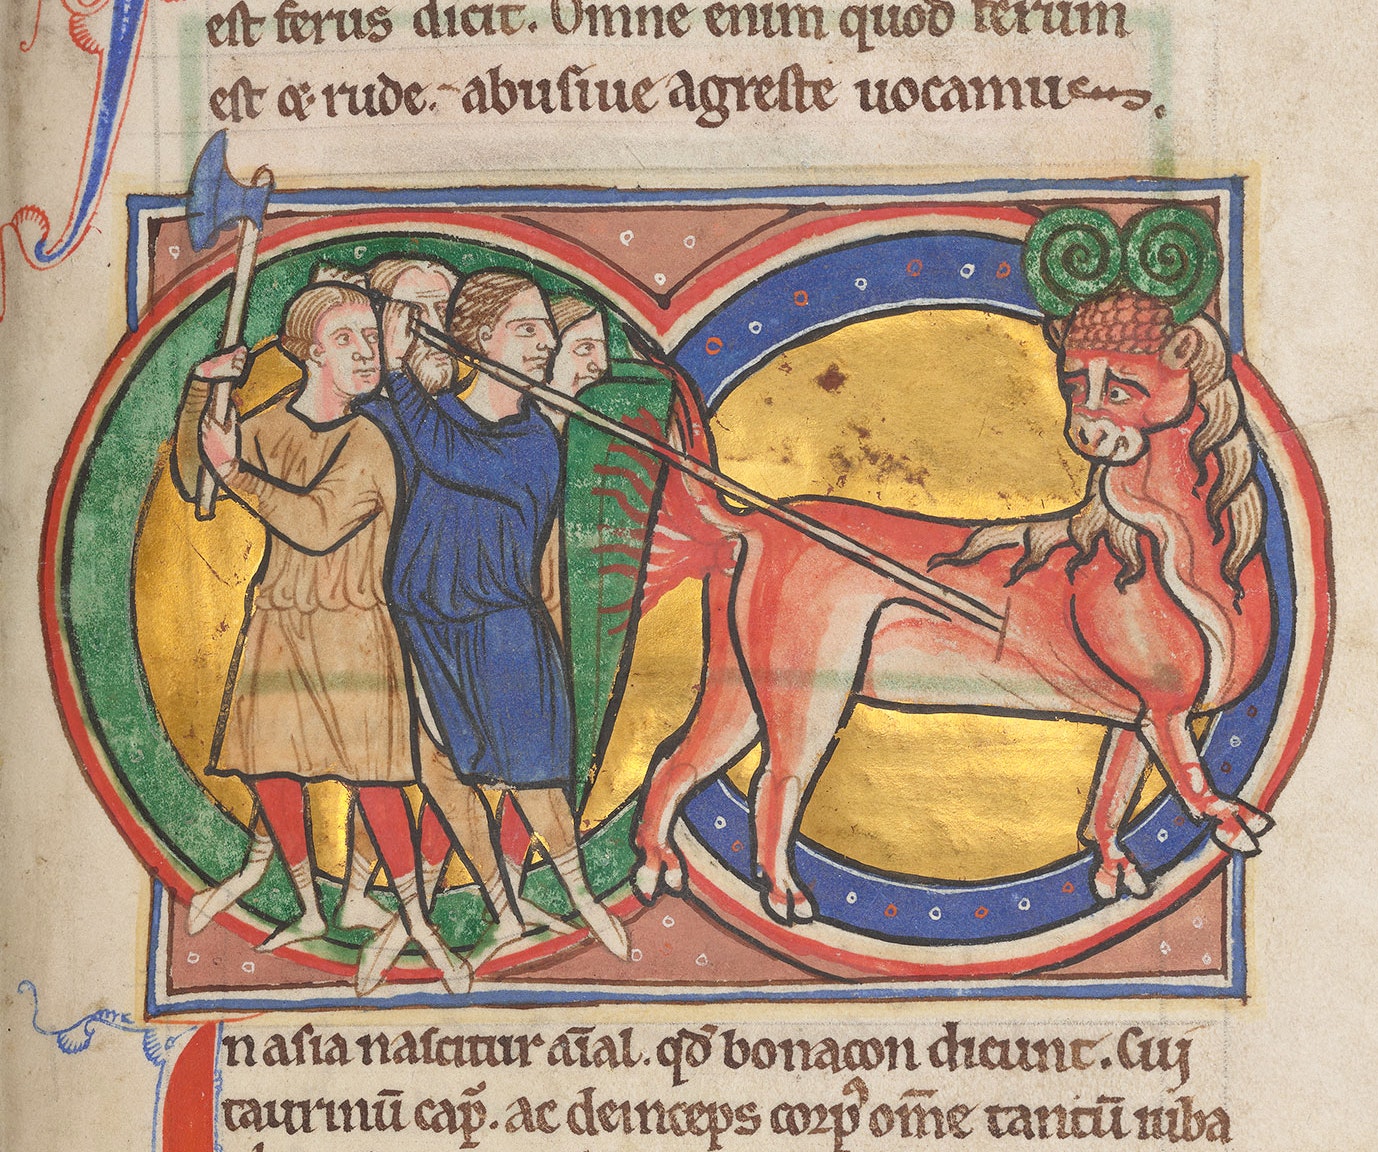 est ferus dicit. Omne enim quod ferum
est & rude. abusiue agreste uocamus.
In asia nascitur aīal. qd̄ bonacon dicunt. Cui
taurinū cap̄. ac deinceps corpꝰ om̄e tantū iuba